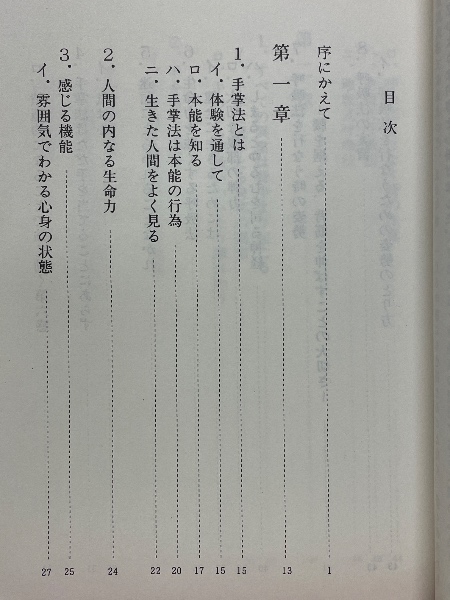 目次
序にかえて 1
第一章 13
1．手掌法とは 15
イ．体験を通して 15
ロ．本能を知る 17
ハ．手掌法は本能の行為 20
ニ．生きた人間をよく見る 22
2．人間の内なる生命力 24
3．感じる機能 25
イ．雰囲気でわかる心身の状態 27